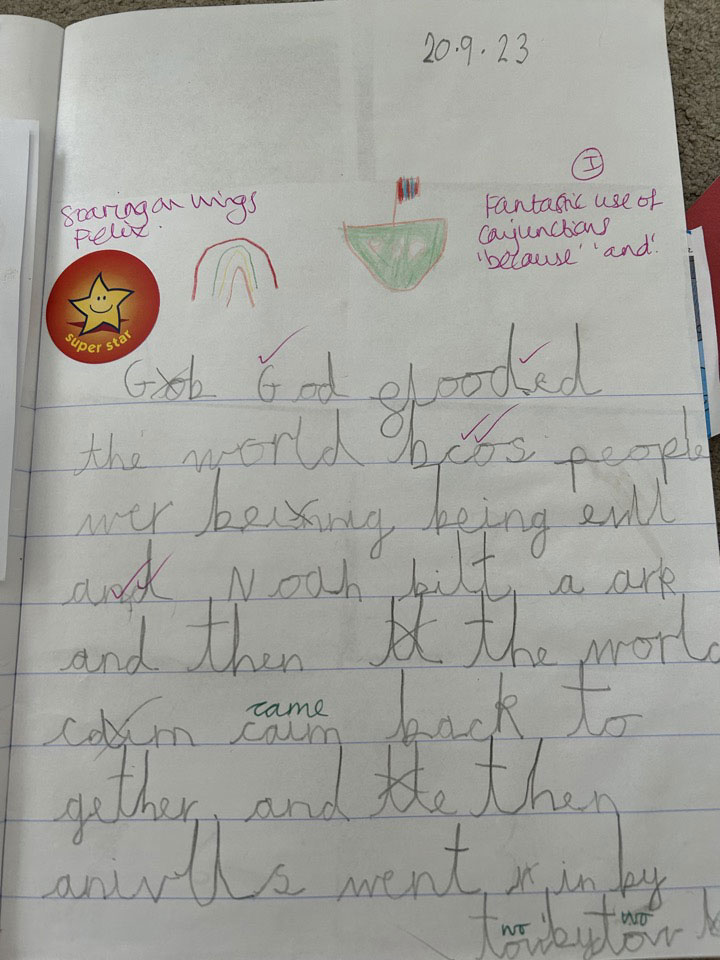 20.9.23
I
Soaring on wings
Felix.
Fantastic use of
conjunctions
'because' 'and'.
super star
God flooded
the world bcos people
wer being evill
and Noah bilt a ark
and then the world
came
caim back to
gether. and then
anivlls went in by
wo wo
tow by tow